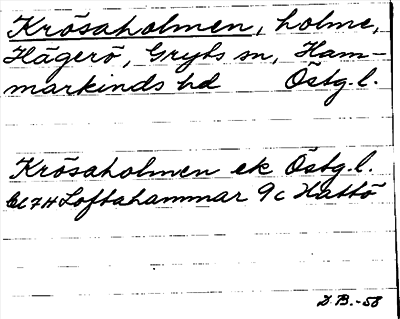 Krösaholmen, holme,
Hägerö, Gryts sn, Ham-
markinds hd Östg. l.
Krösaholmen ek Östg. l.
bl 7H Loftahammar 9c Hattö
D.B.-58